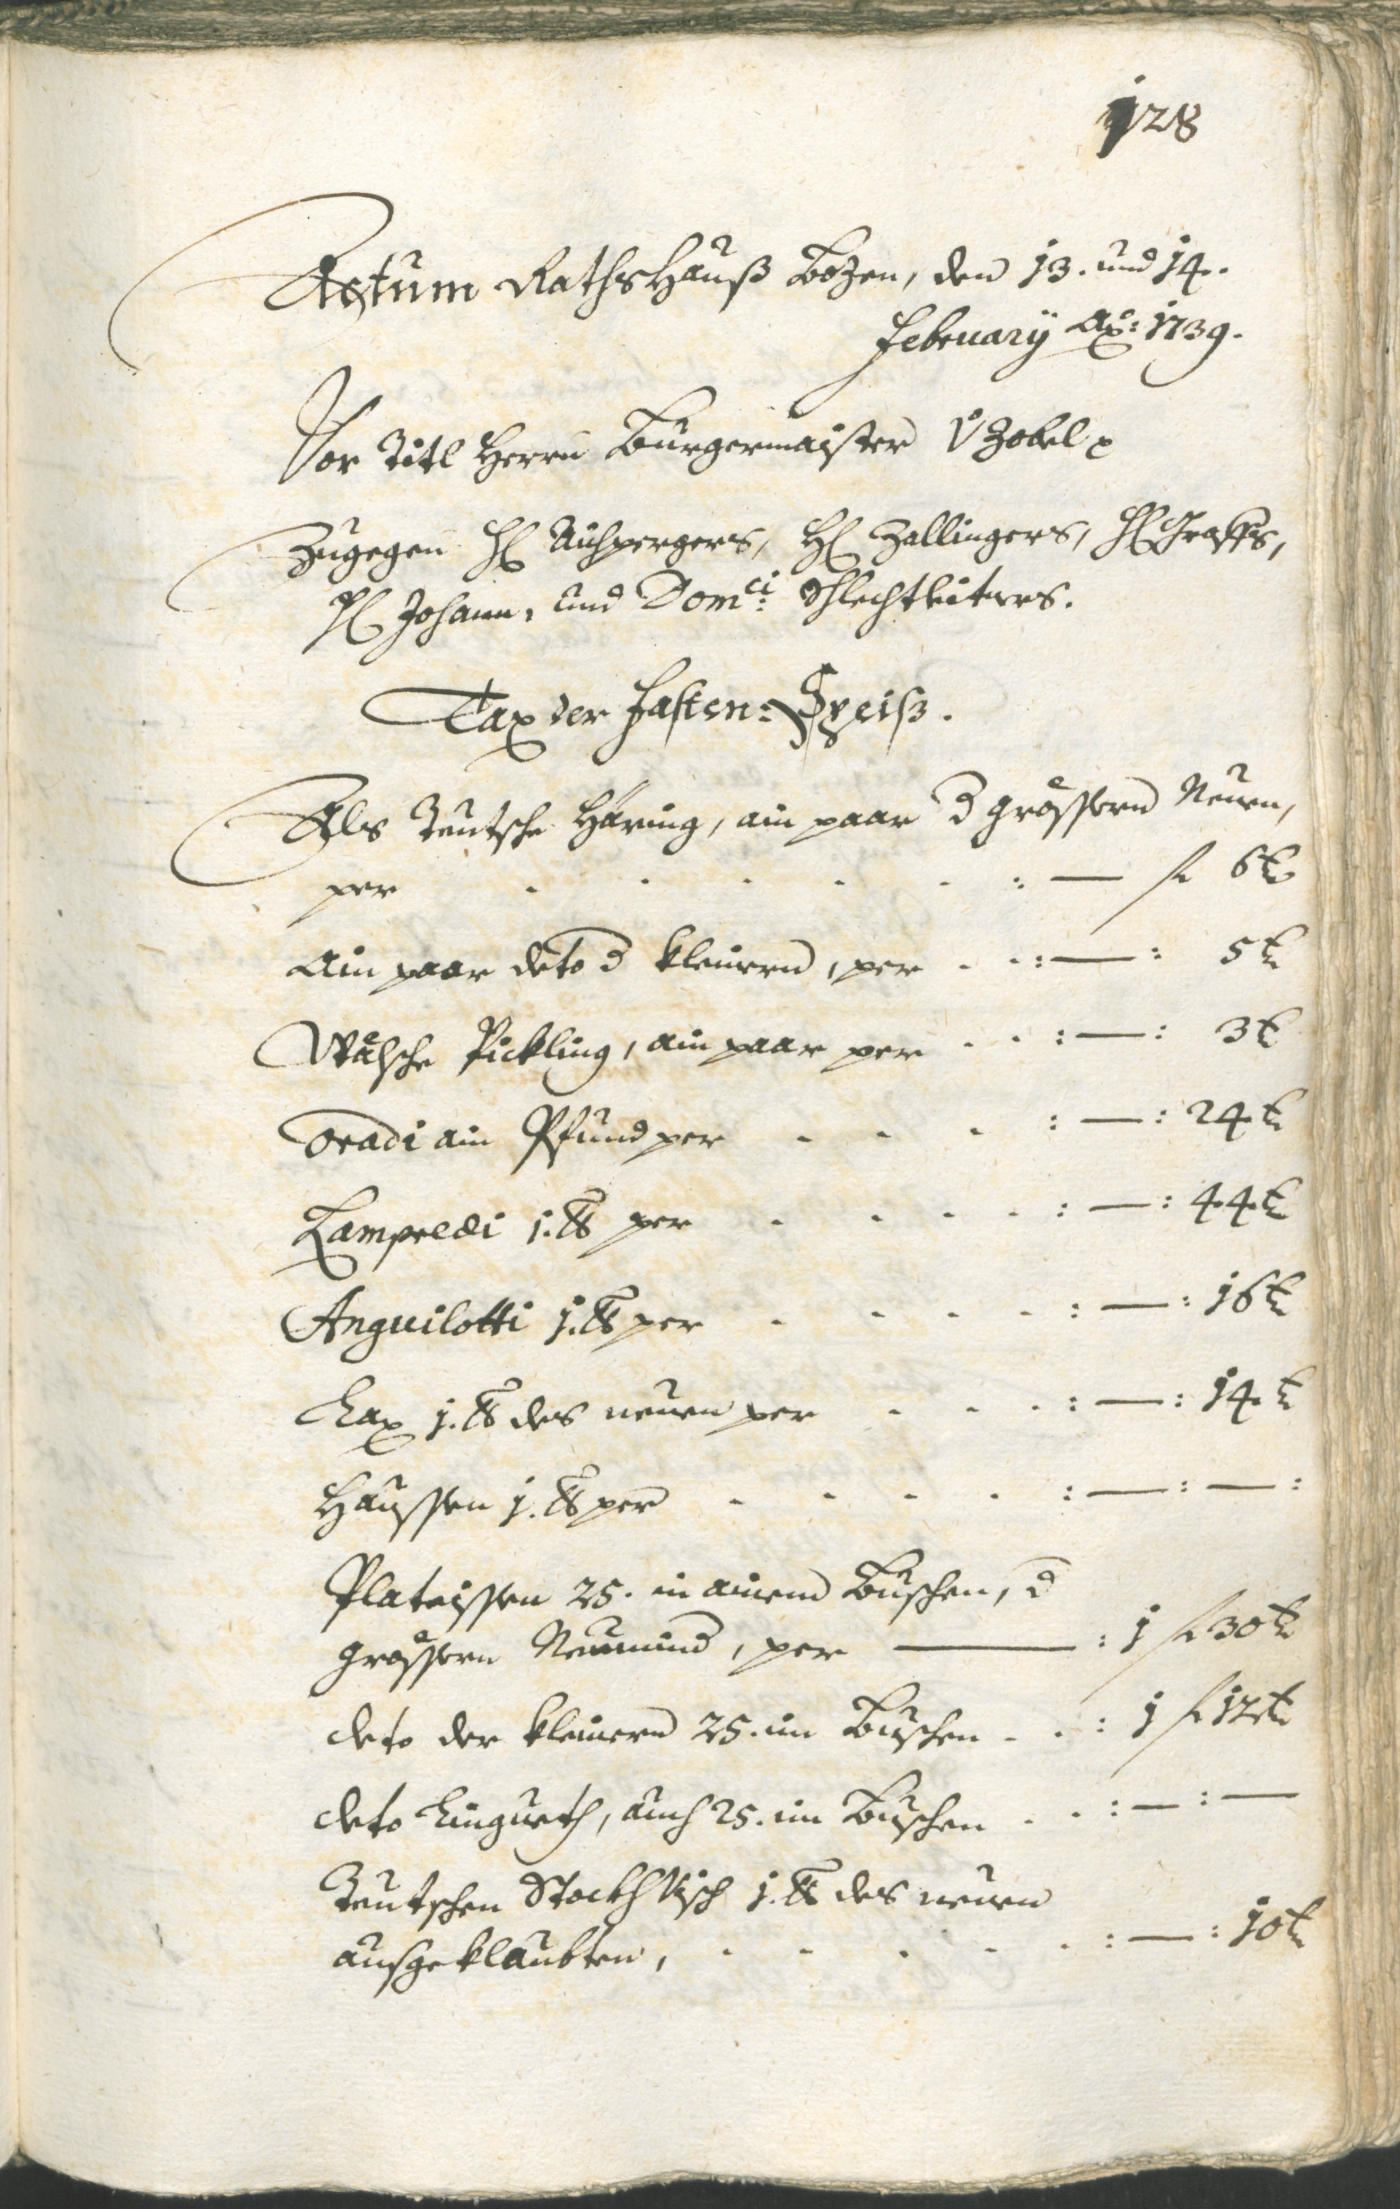 128
Actum Rathshauß Bozen, den 13. und 14.
February Ao: 1739.
Vor Titl Herrn Burgermaister v Zobel
Zugegen H: Auhpergers, H: Zallingers, H: Graffs,
H: Johann, und Domci: Schlechtleiters.
Tax der Fasten: Speiß.
Als Teutsche Häring, ain paar d grössern Neuen,
per - - - - - : — f 6 k
Ain paar deto d kleinern, per - - : — : 5 k
Wälsche Pickling, ain paar per - - : — : 3 k
Oradi ain Pfund per - - - : — : 24 k
Lampredi 1. ℔ per - - - - : — : 44 k
Anguilotti 1. ℔ per - - - - : — : 16 k
Lax 1. ℔ des neuen per - - - : — : 14 k
Haussen 1. ℔ per - - - - : — : — :
Plateissen 25. in ainem Buschen, d
grössern Neuen, per — : 1 f 30 k
deto der kleinern 25. im Buschen - - : 1 f 12 k
deto Lingueth, auch 25. im Buschen - - : — : —
Teutschen Stockhfisch 1. ℔ des neuen
ausgeklaubten, - - - - - : — : 10 k